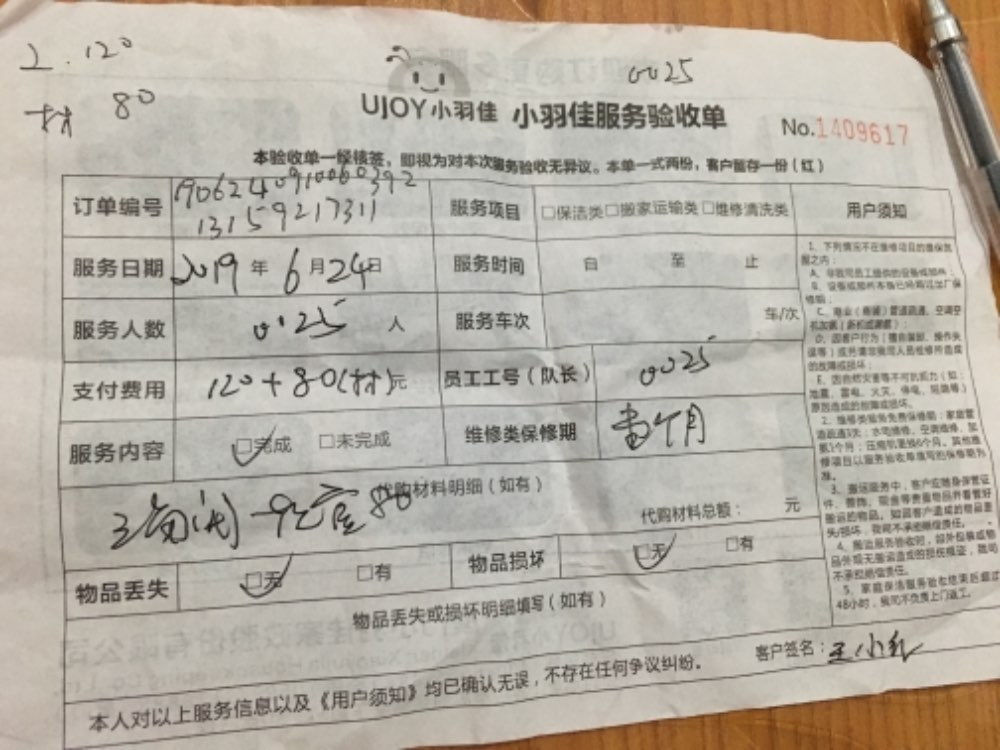 工.120
材 80
0025
UJOY小羽佳 小羽佳服务验收单
No.1409617
本验收单一经核签，即视为对本次服务验收无异议。本单一式两份，客户留存一份（红）
订单编号 190624091006 0392
13159217311
服务项目 □保洁类□搬家运输类□维修清洗类
用户须知
服务日期 2019年6月24日
服务时间 自 至 止
服务人数 0025 人
服务车次 车/次
支付费用 120+80(材)元
员工工号（队长） 0025
服务内容 □完成 □未完成
维修类保修期 壹个月
代购材料明细（如有）
80
代购材料总额： 元
物品丢失 □无 □有
物品损坏 □无 □有
物品丢失或损坏明细填写（如有）
1、下列情况不在维修项目的维保范
围之内：
A、非我司员工提供的设备或部件；
B、设备或部件本身已经超过出厂保
修期；
C、商业（商铺）管道疏通、空调空
机加氟（新机或漏氟）；
D、因客户行为（擅自装卸、操作失
误等）或另请非我司人员维修所造成
的故障或损坏；
E、因自然灾害等不可抗拒力（如：
地震、雷电、火灾、停电、短路等）
原因造成的故障或损坏。
2、维修类服务免费保修期：家庭管
道疏通3天；水电维修、空调维修、加
氟1个月；压缩机更换6个月。其他维
修项目以服务验收单填写的保修期为
准。
3、搬运服务中，客户应随身保管证
件、首饰、现金等贵重物品并看管好
搬运的物品。如因客户造成的物品丢
失/损坏，我司不承担赔偿责任。
4、搬运服务验收时，如外包装或物
品外观无搬运造成的损伤痕迹，我司
不承担赔偿责任。
5、家庭保洁服务验收结束后超过
48小时，我司不负责上门返工。
客户签名：王小红
本人对以上服务信息以及《用户须知》均已确认无误，不存在任何争议纠纷。